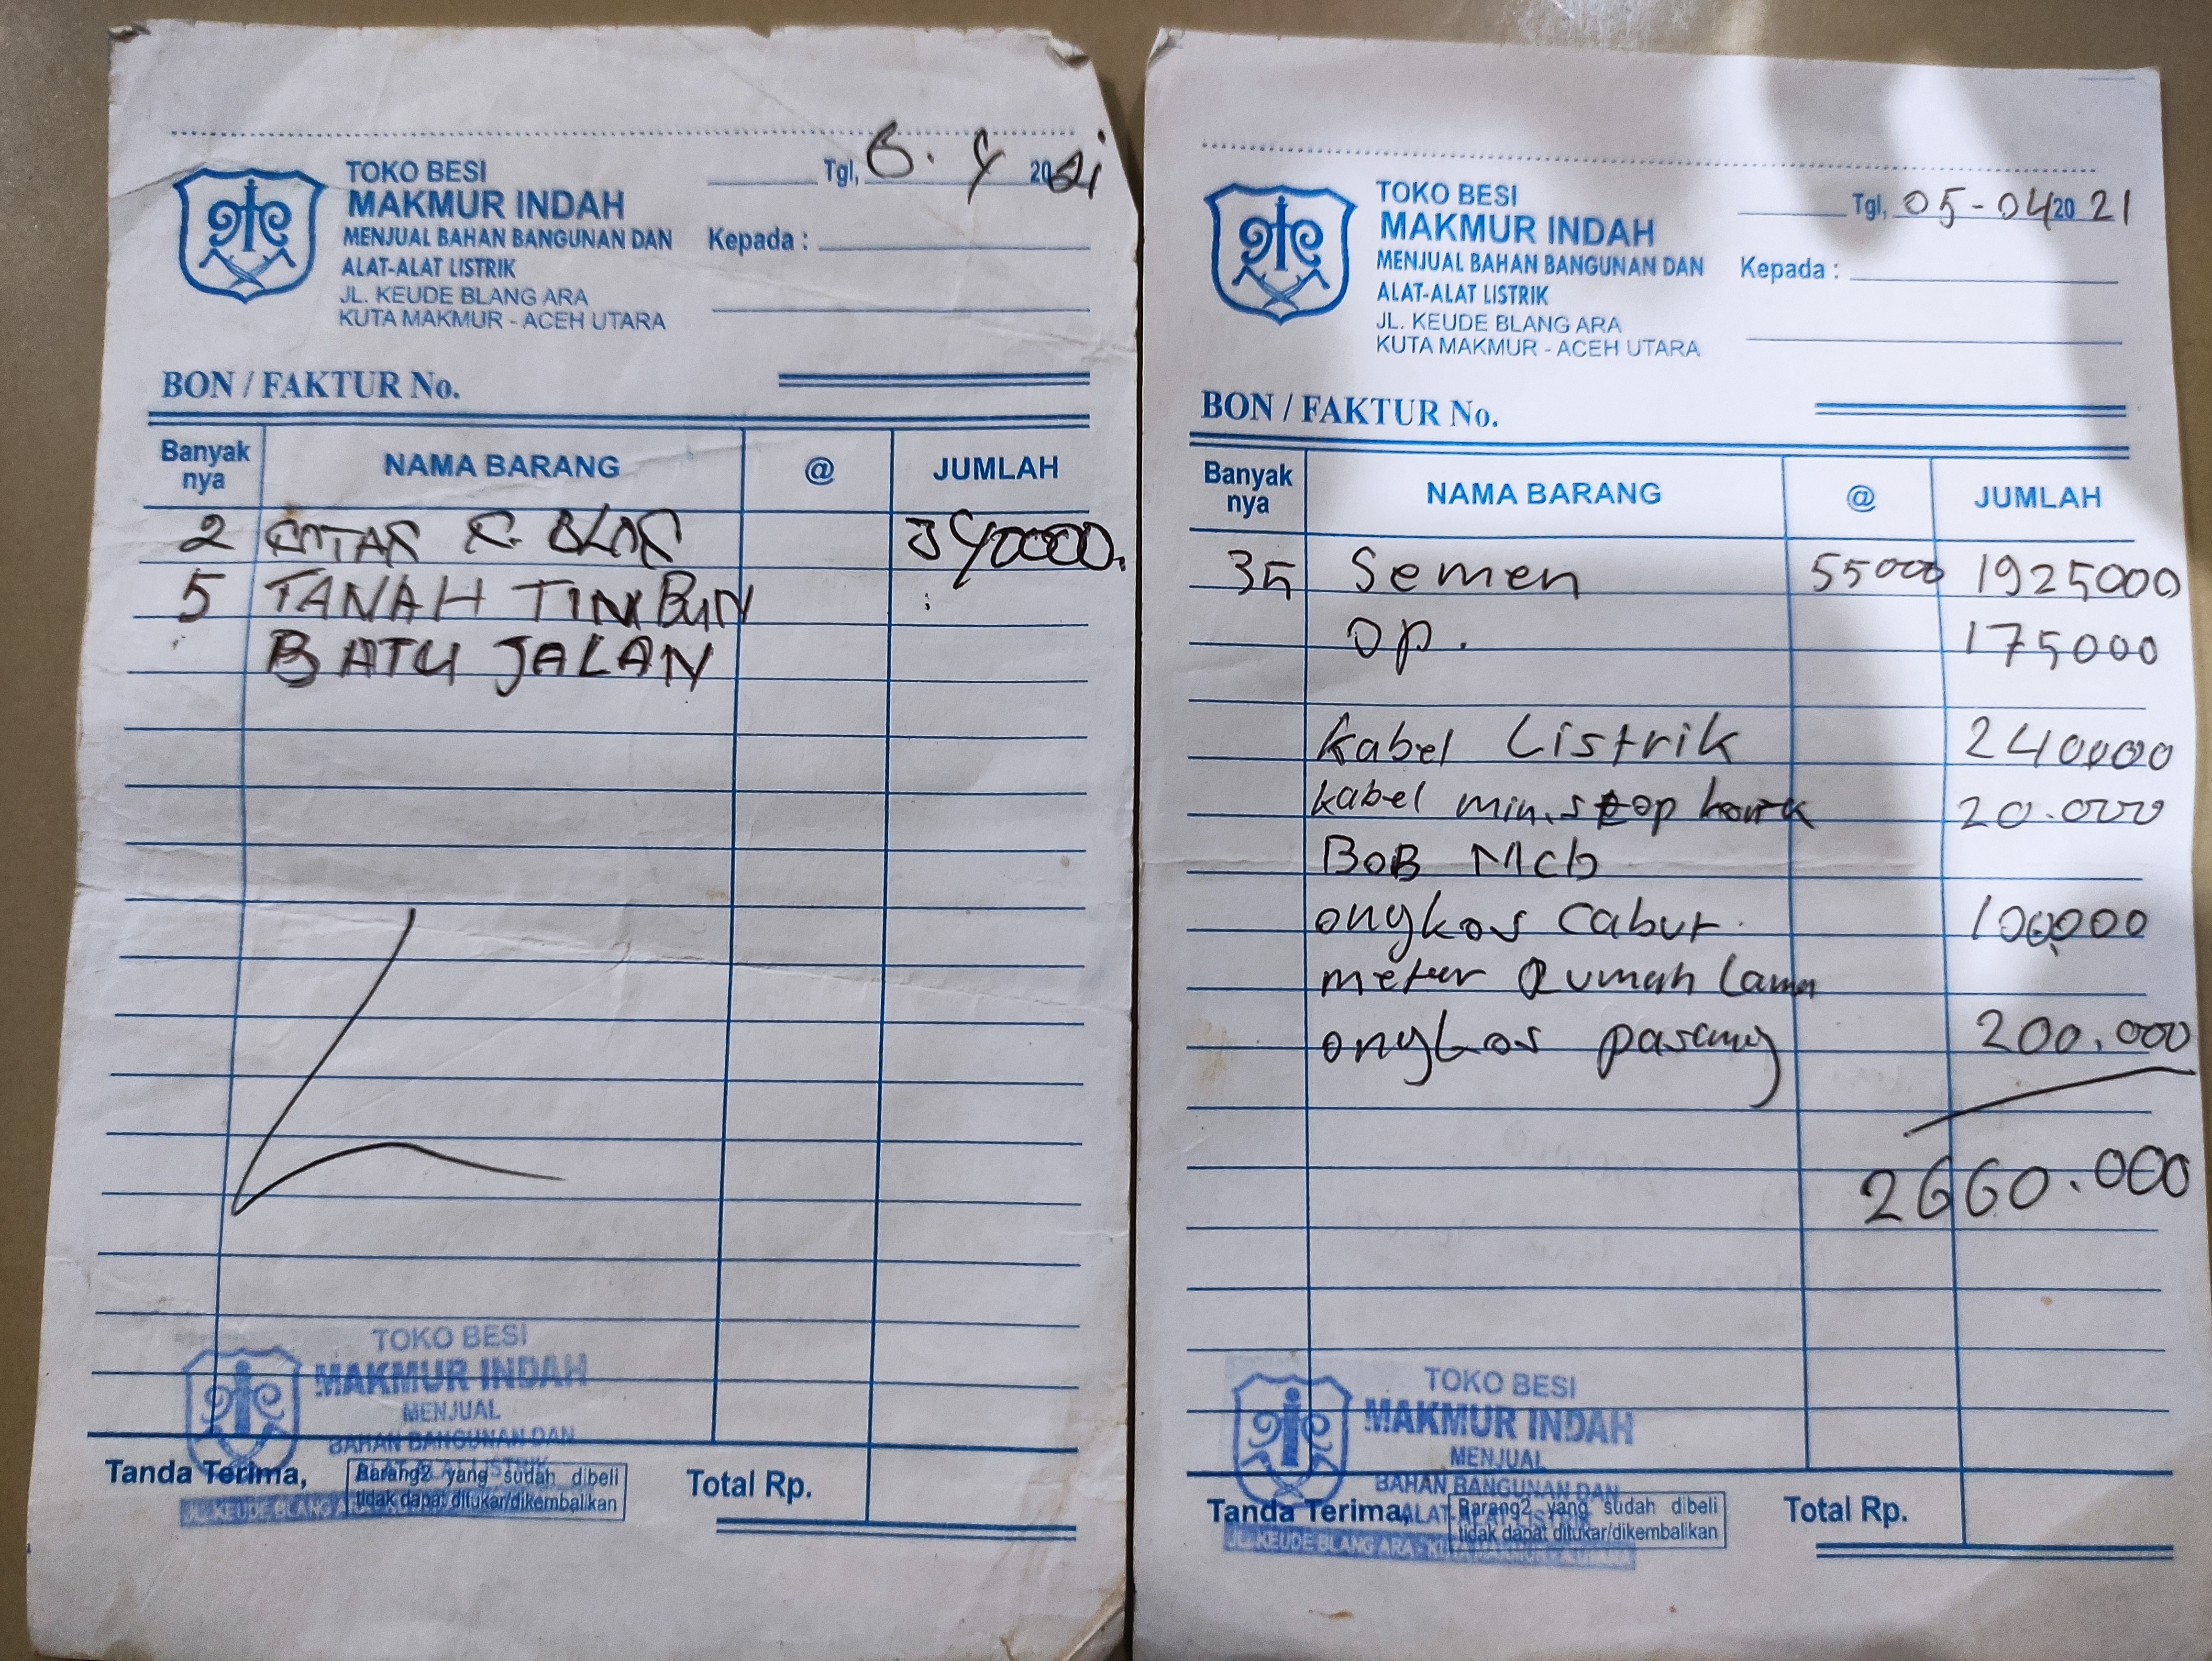 Tgl, 6. 4 2021
TOKO BESI
MAKMUR INDAH
MENJUAL BAHAN BANGUNAN DAN
ALAT-ALAT LISTRIK
JL. KEUDE BLANG ARA
KUTA MAKMUR - ACEH UTARA
Kepada :
BON / FAKTUR No.
Banyak nya NAMA BARANG @ JUMLAH
2 40000.
5 TANAH TIMBUN
BATU JALAN
TOKO BESI
MAKMUR INDAH
MENJUAL
BAHAN BANGUNAN DAN
Tanda Terima,
Barang2 yang sudah dibeli
tidak dapat ditukar/dikembalikan
JL. KEUDE BLANG
Total Rp.
Tgl, 05-04 20 21
TOKO BESI
MAKMUR INDAH
MENJUAL BAHAN BANGUNAN DAN
ALAT-ALAT LISTRIK
JL. KEUDE BLANG ARA
KUTA MAKMUR - ACEH UTARA
Kepada :
BON / FAKTUR No.
Banyak nya NAMA BARANG @ JUMLAH
35 Semen 55000 1925000
op. 175000
kabel Listrik 240000
kabel min. stop 20.000
BOB MCb
ongkos Cabut. 100,000
meter Rumah Lama
ongkos pasang 200.000
2660.000
TOKO BESI
MAKMUR INDAH
MENJUAL
BAHAN BANGUNAN DAN
Tanda Terima,
Barang2 yang sudah dibeli
tidak dapat ditukar/dikembalikan
JL. KEUDE BLANG ARA - KUTA MAKMUR - A.UTARA
Total Rp.